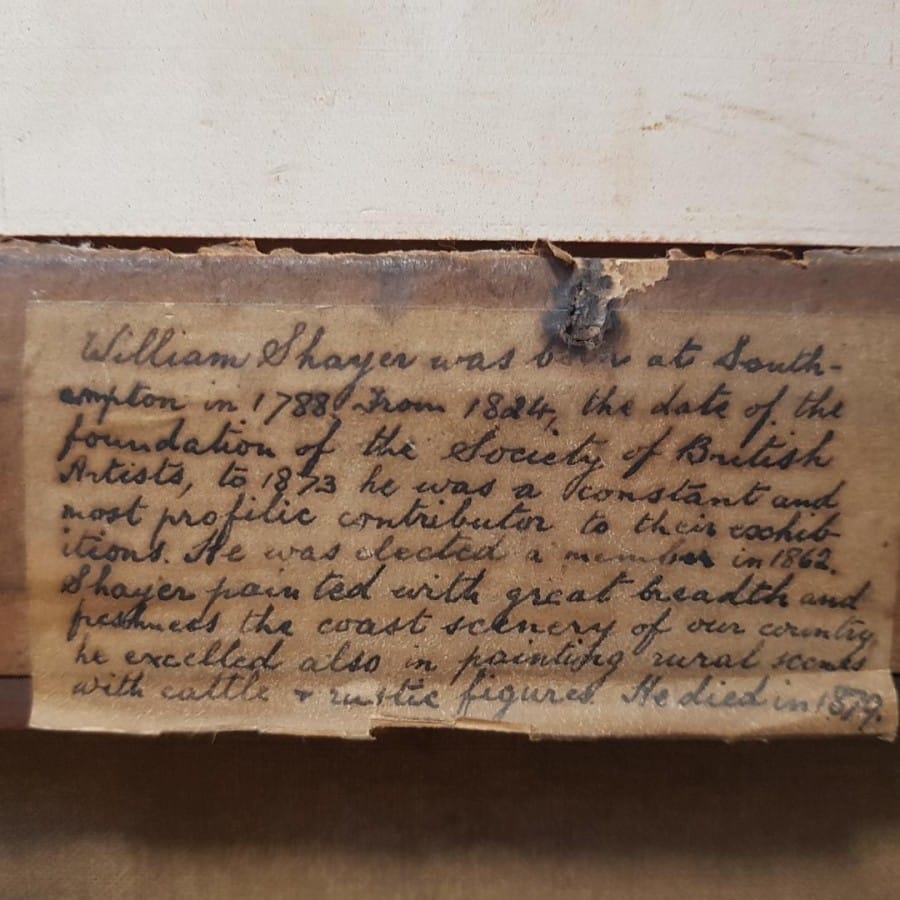 William Shayer was born at South-
ampton in 1788. From 1824, the date of the
foundation of the Society of British
Artists, to 1873 he was a constant and
most profilic contributor to their exhib-
itions. He was elected a member in 1862.
Shayer painted with great breadth and
freshness the coast scenery of our country,
he excelled also in painting rural scenes
with cattle + rustic figures. He died in 1879.